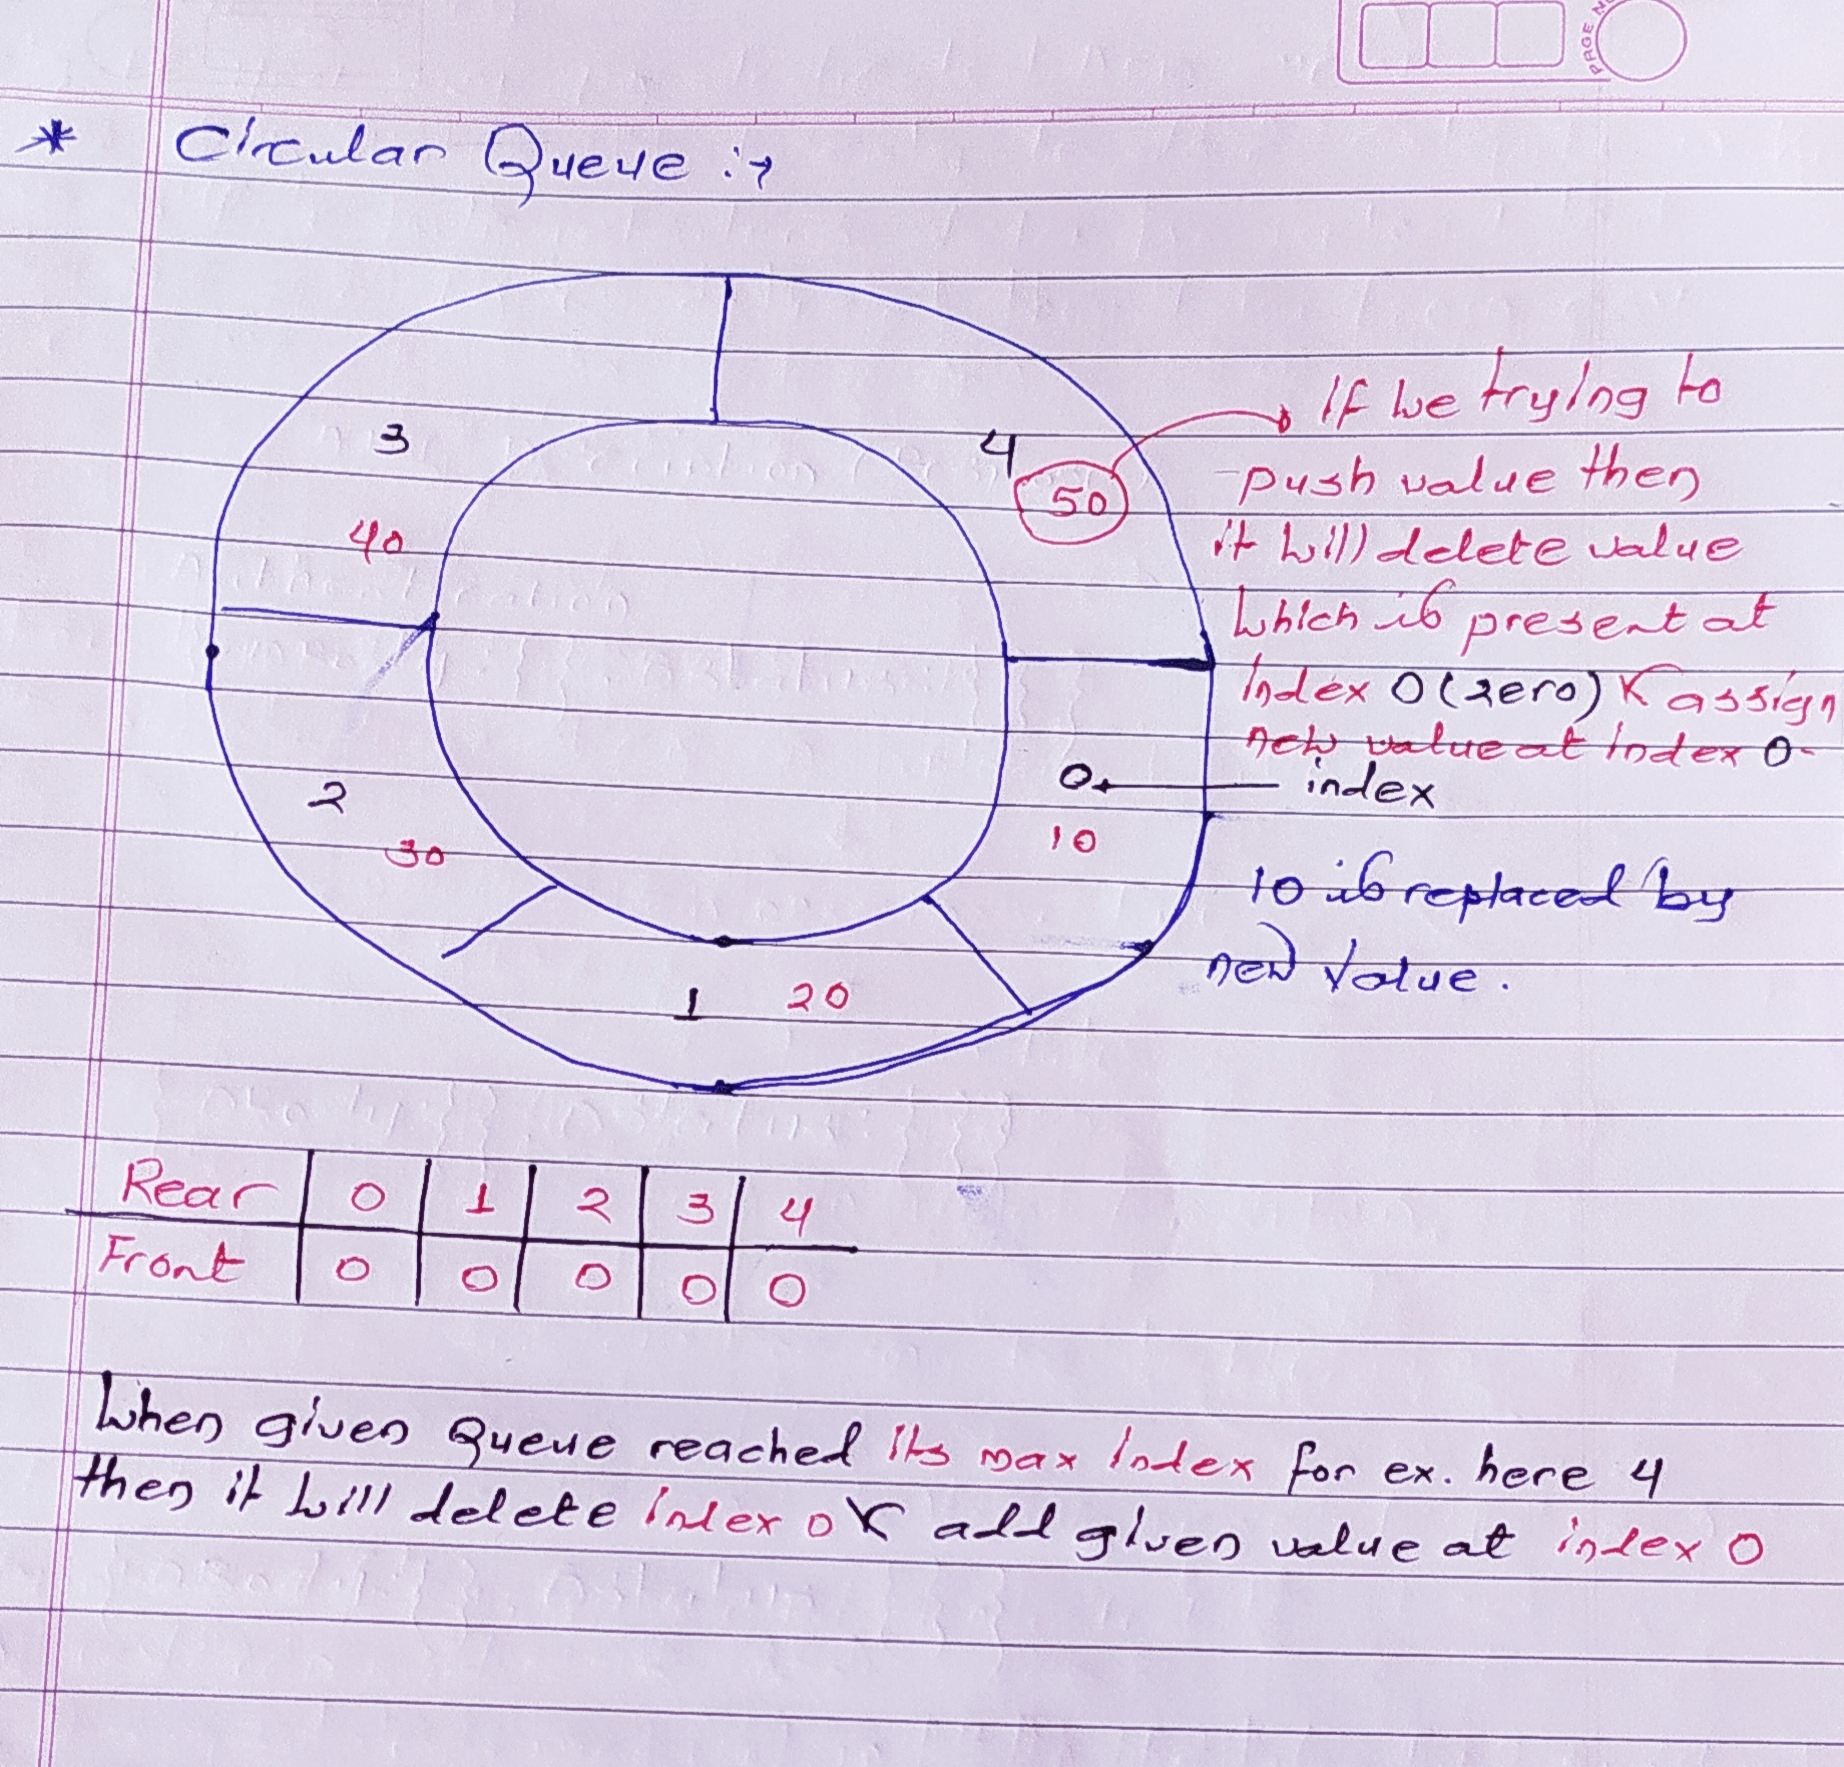 PAGE
* Circular Queue :→
3
40
4
50
If we trying to
push value then
it will delete value
which is present at
index 0 (zero) & assign
new value at index 0.
0 index
10
2
30
10 is replaced by
new value.
1 20
Rear 0 1 2 3 4
Front 0 0 0 0 0
When given Queue reached its max index for ex. here 4
then it will delete index 0 & add given value at index 0